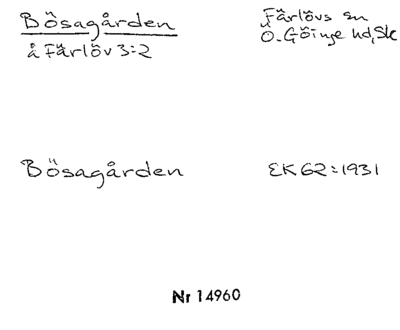 Bösagården
å Färlöv 3:2
Färlövs sn
Ö. Göinge hd, Sk
Bösagården
EK 62:1931
Nr 14960